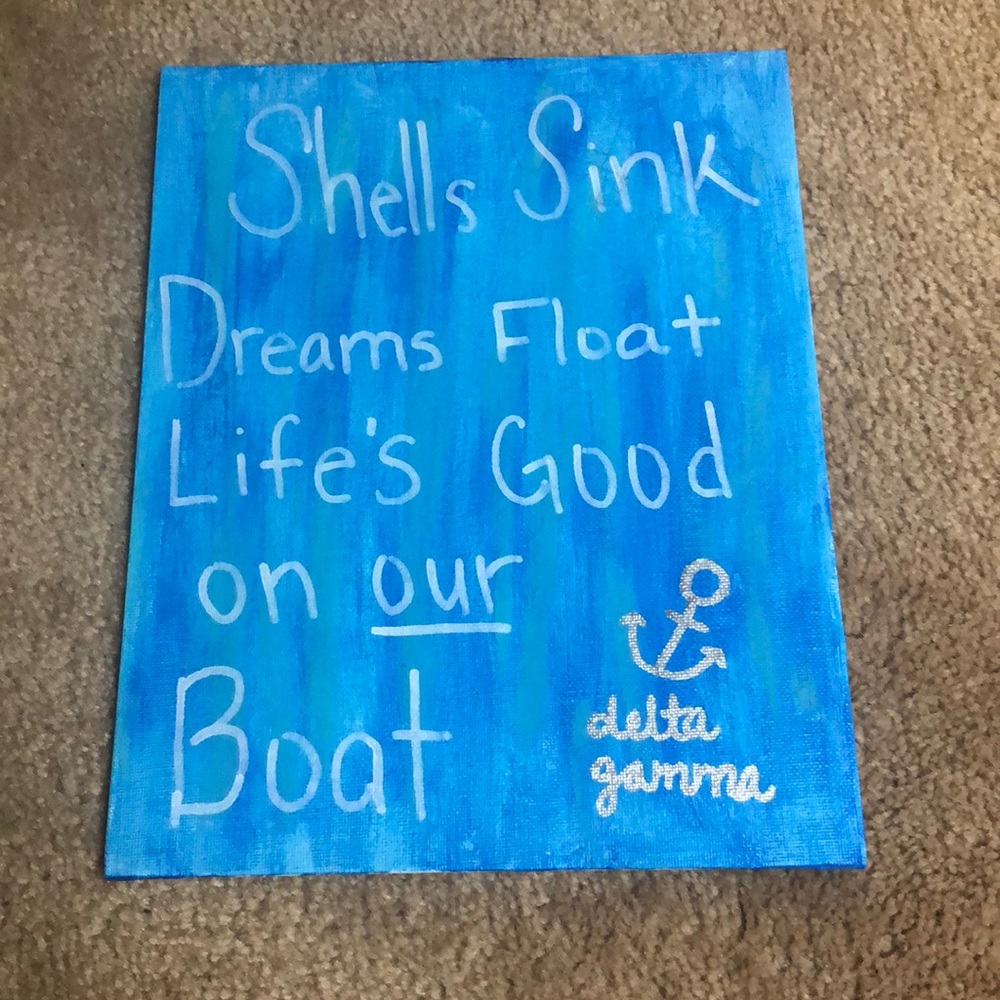 Shells Sink
Dreams Float
Life's Good
on our
Boat
delta
gamma